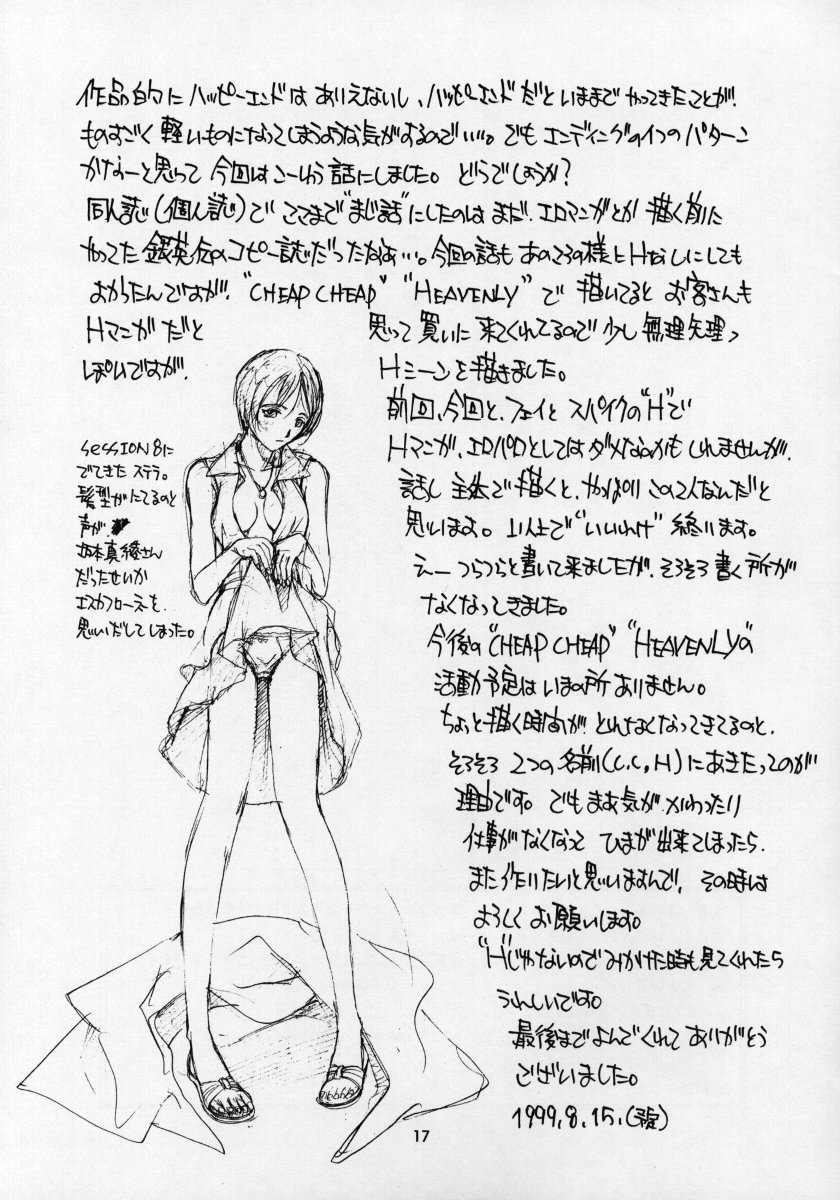 作品的にハッピーエンドはありえないし、ハッピーエンドだといままでやってきたことが、
ものすごく軽いものになってしまうような気がするので…。でもエンディングの1つのパターン
かなーと思って今回はこーいう話にしました。どうでしょうか?
同人誌(個人誌)でここまで"まじ話"にしたのはまだ、エロマンガとか描く前に
やってた銀英伝のコピー誌だったなあ…。今回の話もあのころの様にHなしにしても
よかったんですが、"CHEAP CHEAP" "HEAVENLY"で描いてるとお客さんも
Hマンガだと思って買いに来てくれてるので少し無理矢理っ
ぽいですが、Hシーンを描きました。
前回、今回と、フェイとスパイクの"H"で
Hマンガ、エロパロとしてはダメなのかもしれませんが、
話し主体で描くと、やっぱりこの2人なんだと
思います。以上で"いいわけ"終ります。
えーつらつらと書いて来ましたが、そろそろ書く所が
なくなってきました。
今後の"CHEAP CHEAP" "HEAVENLY"の
活動予定はいまの所ありません。
ちょっと描く時間が、とれなくなってきてるのと、
そろそろ2つの名前(C.C,H)にあきたってのが
理由です。でもまあ気が、かわったり
仕事がなくなってひまが出来てしまったら、
また作りたいと思いますんで、その時は
よろしくお願いします。
"H"じゃないのでみかけた時も見てくれたら
うれしいです。
最後までよんでくれてありがとう
ございました。
1999.8.15.
SESSION8に
でてきたステラ。
髪型がにてるのと
声が、
坂本真綾さん
だったせいか
エスカフローネを、
思いだしてしまった。
17